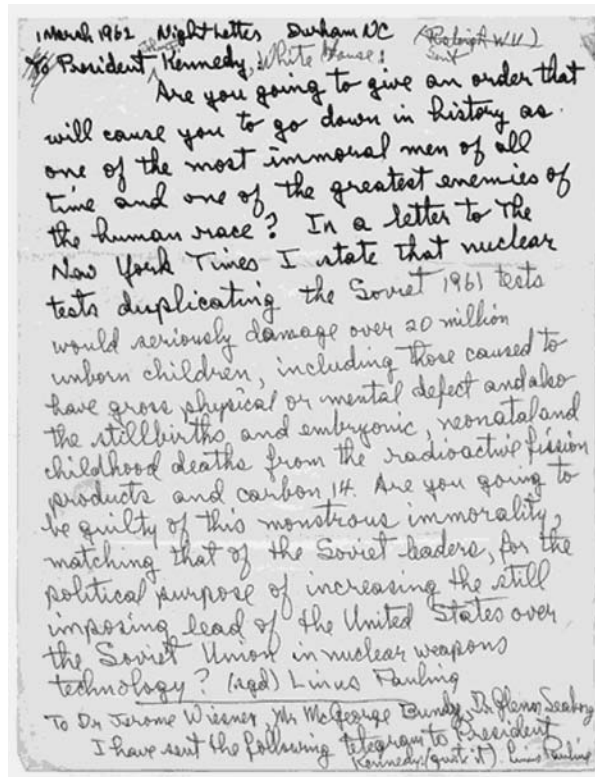 1 March 1962 Night Letter Durham NC (Raleigh W.U.)
Sent
To President John F. Kennedy, White House:
Are you going to give an order that
will cause you to go down in history as
one of the most immoral men of all
time and one of the greatest enemies of
the human race? In a letter to The
New York Times I state that nuclear
tests duplicating the Soviet 1961 tests
would seriously damage over 20 million
unborn children, including those caused to
have gross physical or mental defect and also
the stillbirths and embryonic, neonatal and
childhood deaths from the radioactive fission
products and carbon 14. Are you going to
be guilty of this monstrous immorality,
matching that of the Soviet leaders, for the
political purpose of increasing the still
imposing lead of the United States over
the Soviet Union in nuclear weapons
technology? (sgd) Linus Pauling
To Dr Jerome Wiesner, Mr McGeorge Bundy, Dr. Glenn Seaborg
I have sent the following telegram to President
Kennedy (quote it) Linus Pauling